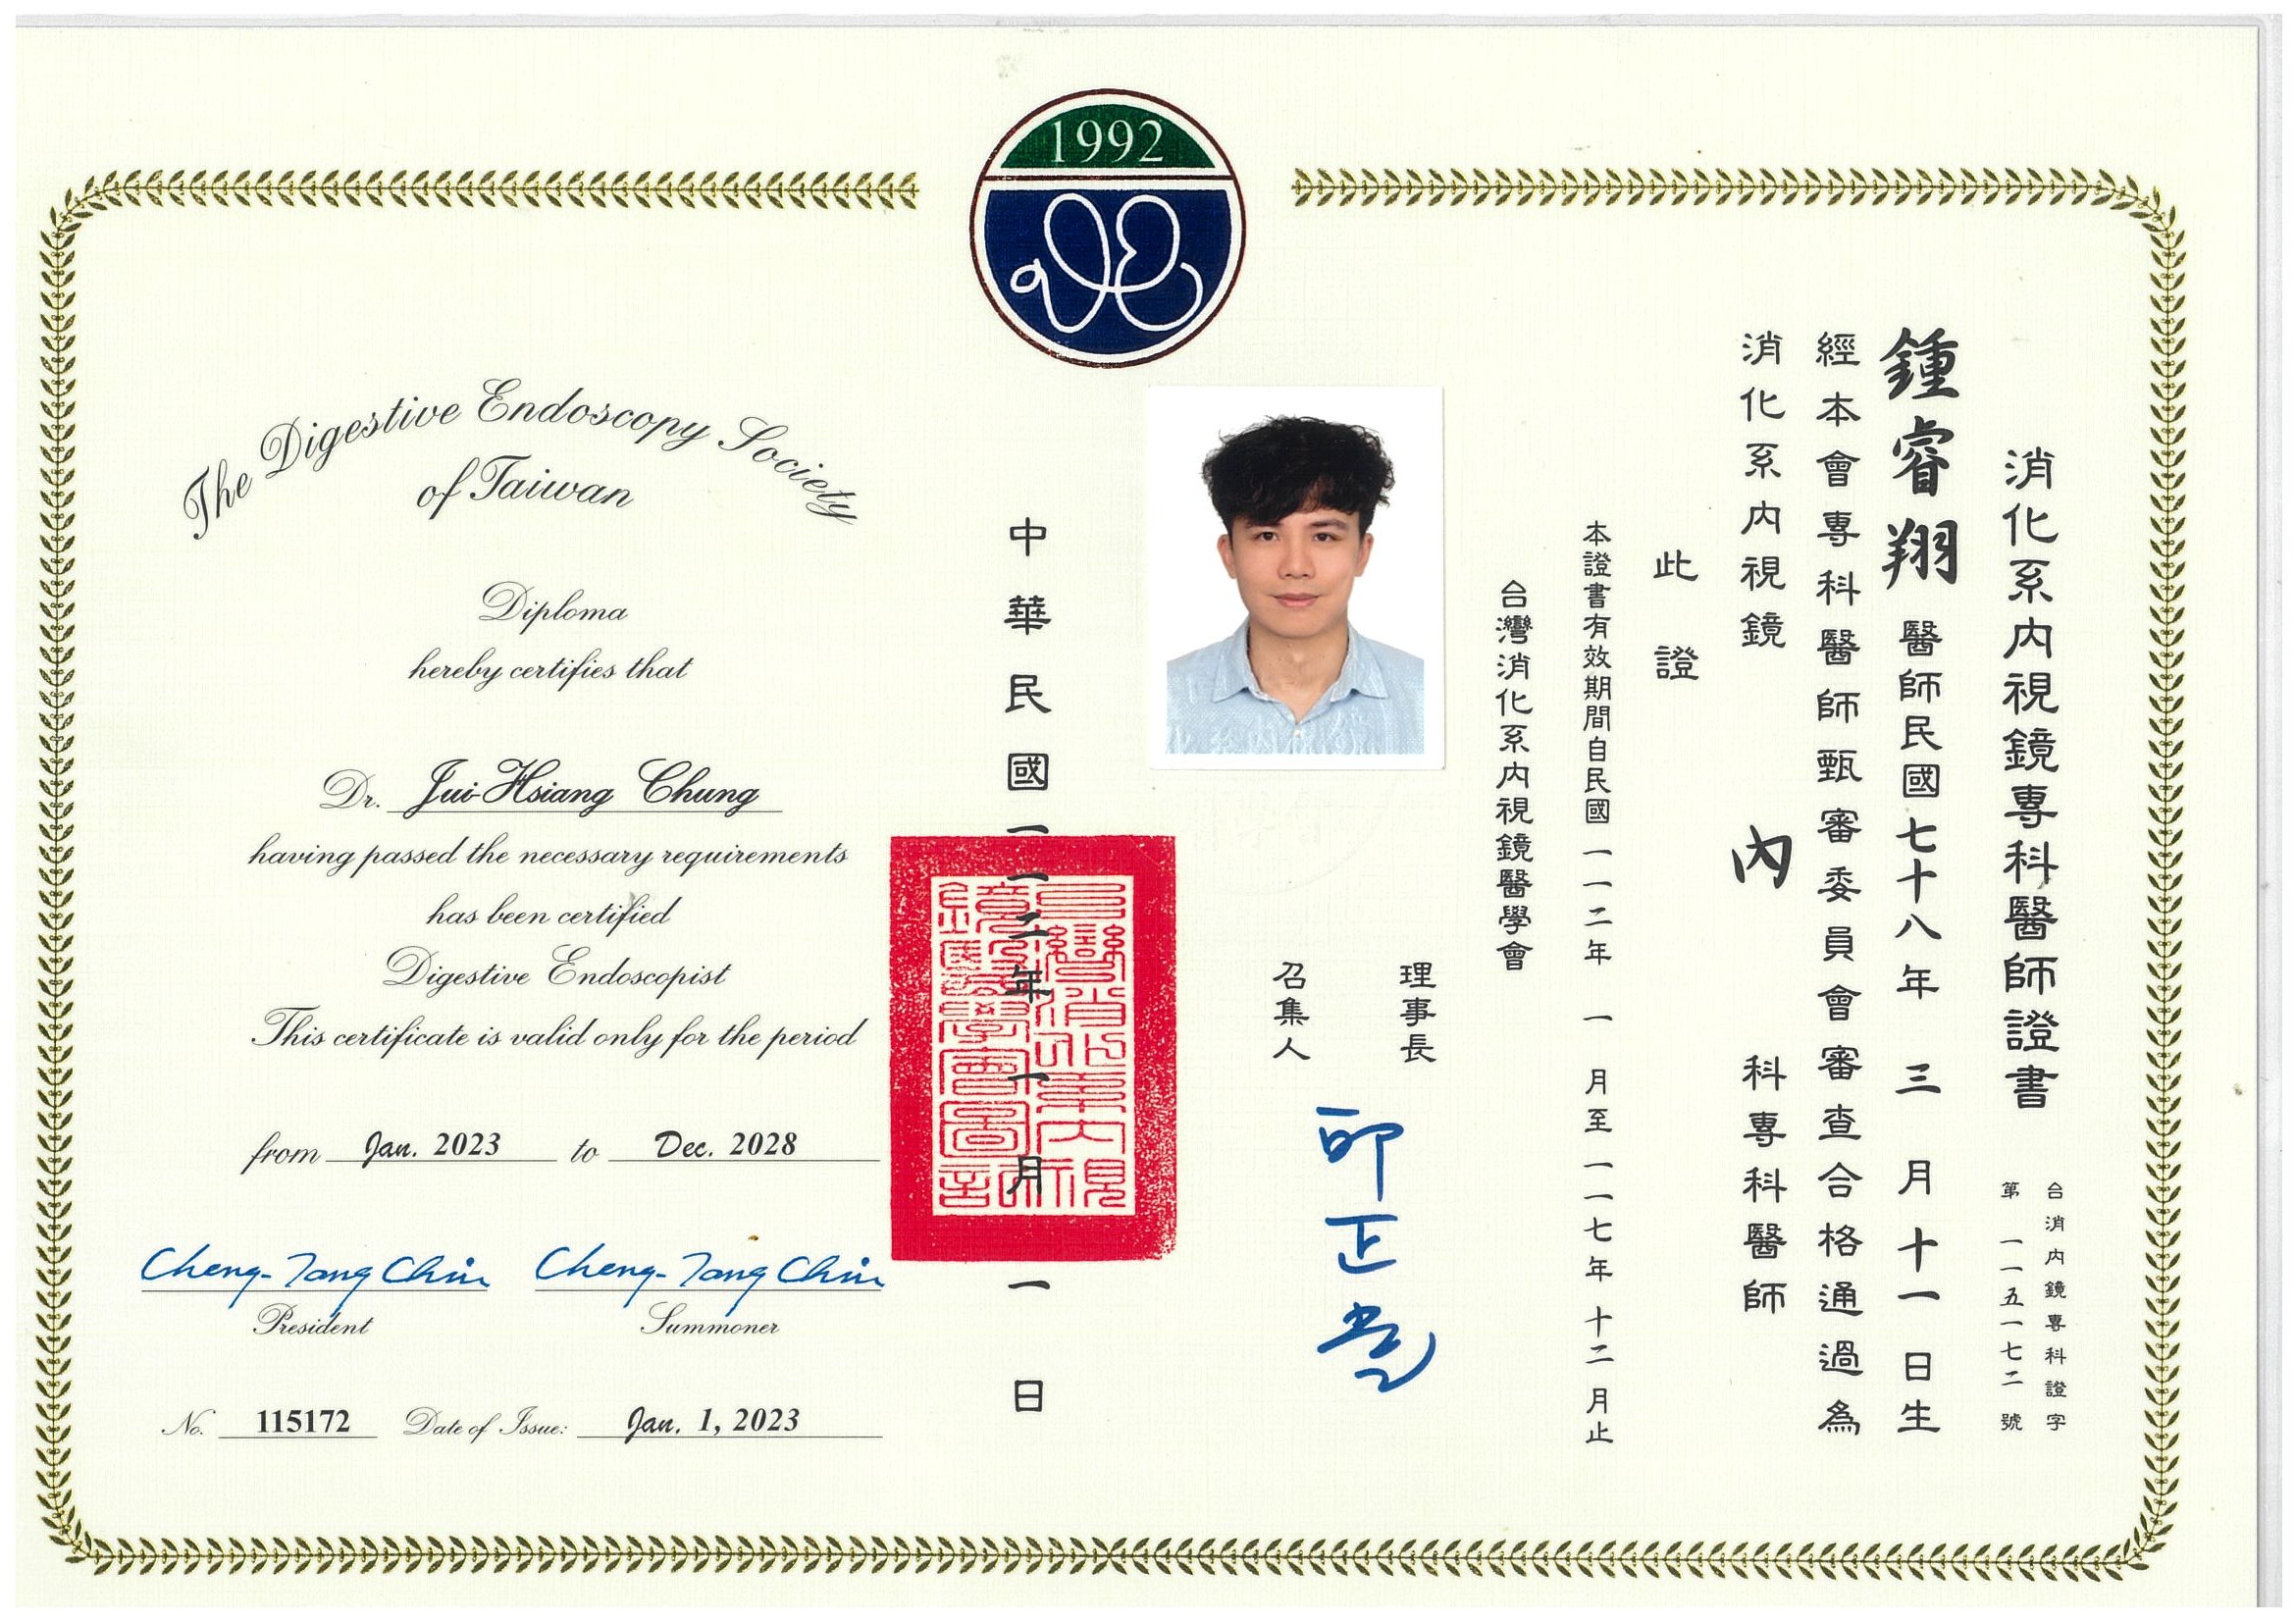 1992
消化系內視鏡專科醫師證書
台消內鏡專科證字
第一一五一七二號
鍾睿翔醫師民國七十八年三月十一日生
經本會專科醫師甄審委員會審查合格通過為
消化系內視鏡 內 科專科醫師
此證
本證書有效期間自民國一一二年一月至一一七年十二月止
台灣消化系內視鏡醫學會
理事長
召集人
邱正堂
中華民國一一二年一月一日
The Digestive Endoscopy Society
of Taiwan
Diploma
hereby certifies that
Dr. Jui-Hsiang Chung
having passed the necessary requirements
has been certified
Digestive Endoscopist
This certificate is valid only for the period
from Jan. 2023 to Dec. 2028
Cheng-Tang Chiu Cheng-Tang Chiu
President Summoner
No. 115172 Date of Issue: Jan. 1, 2023